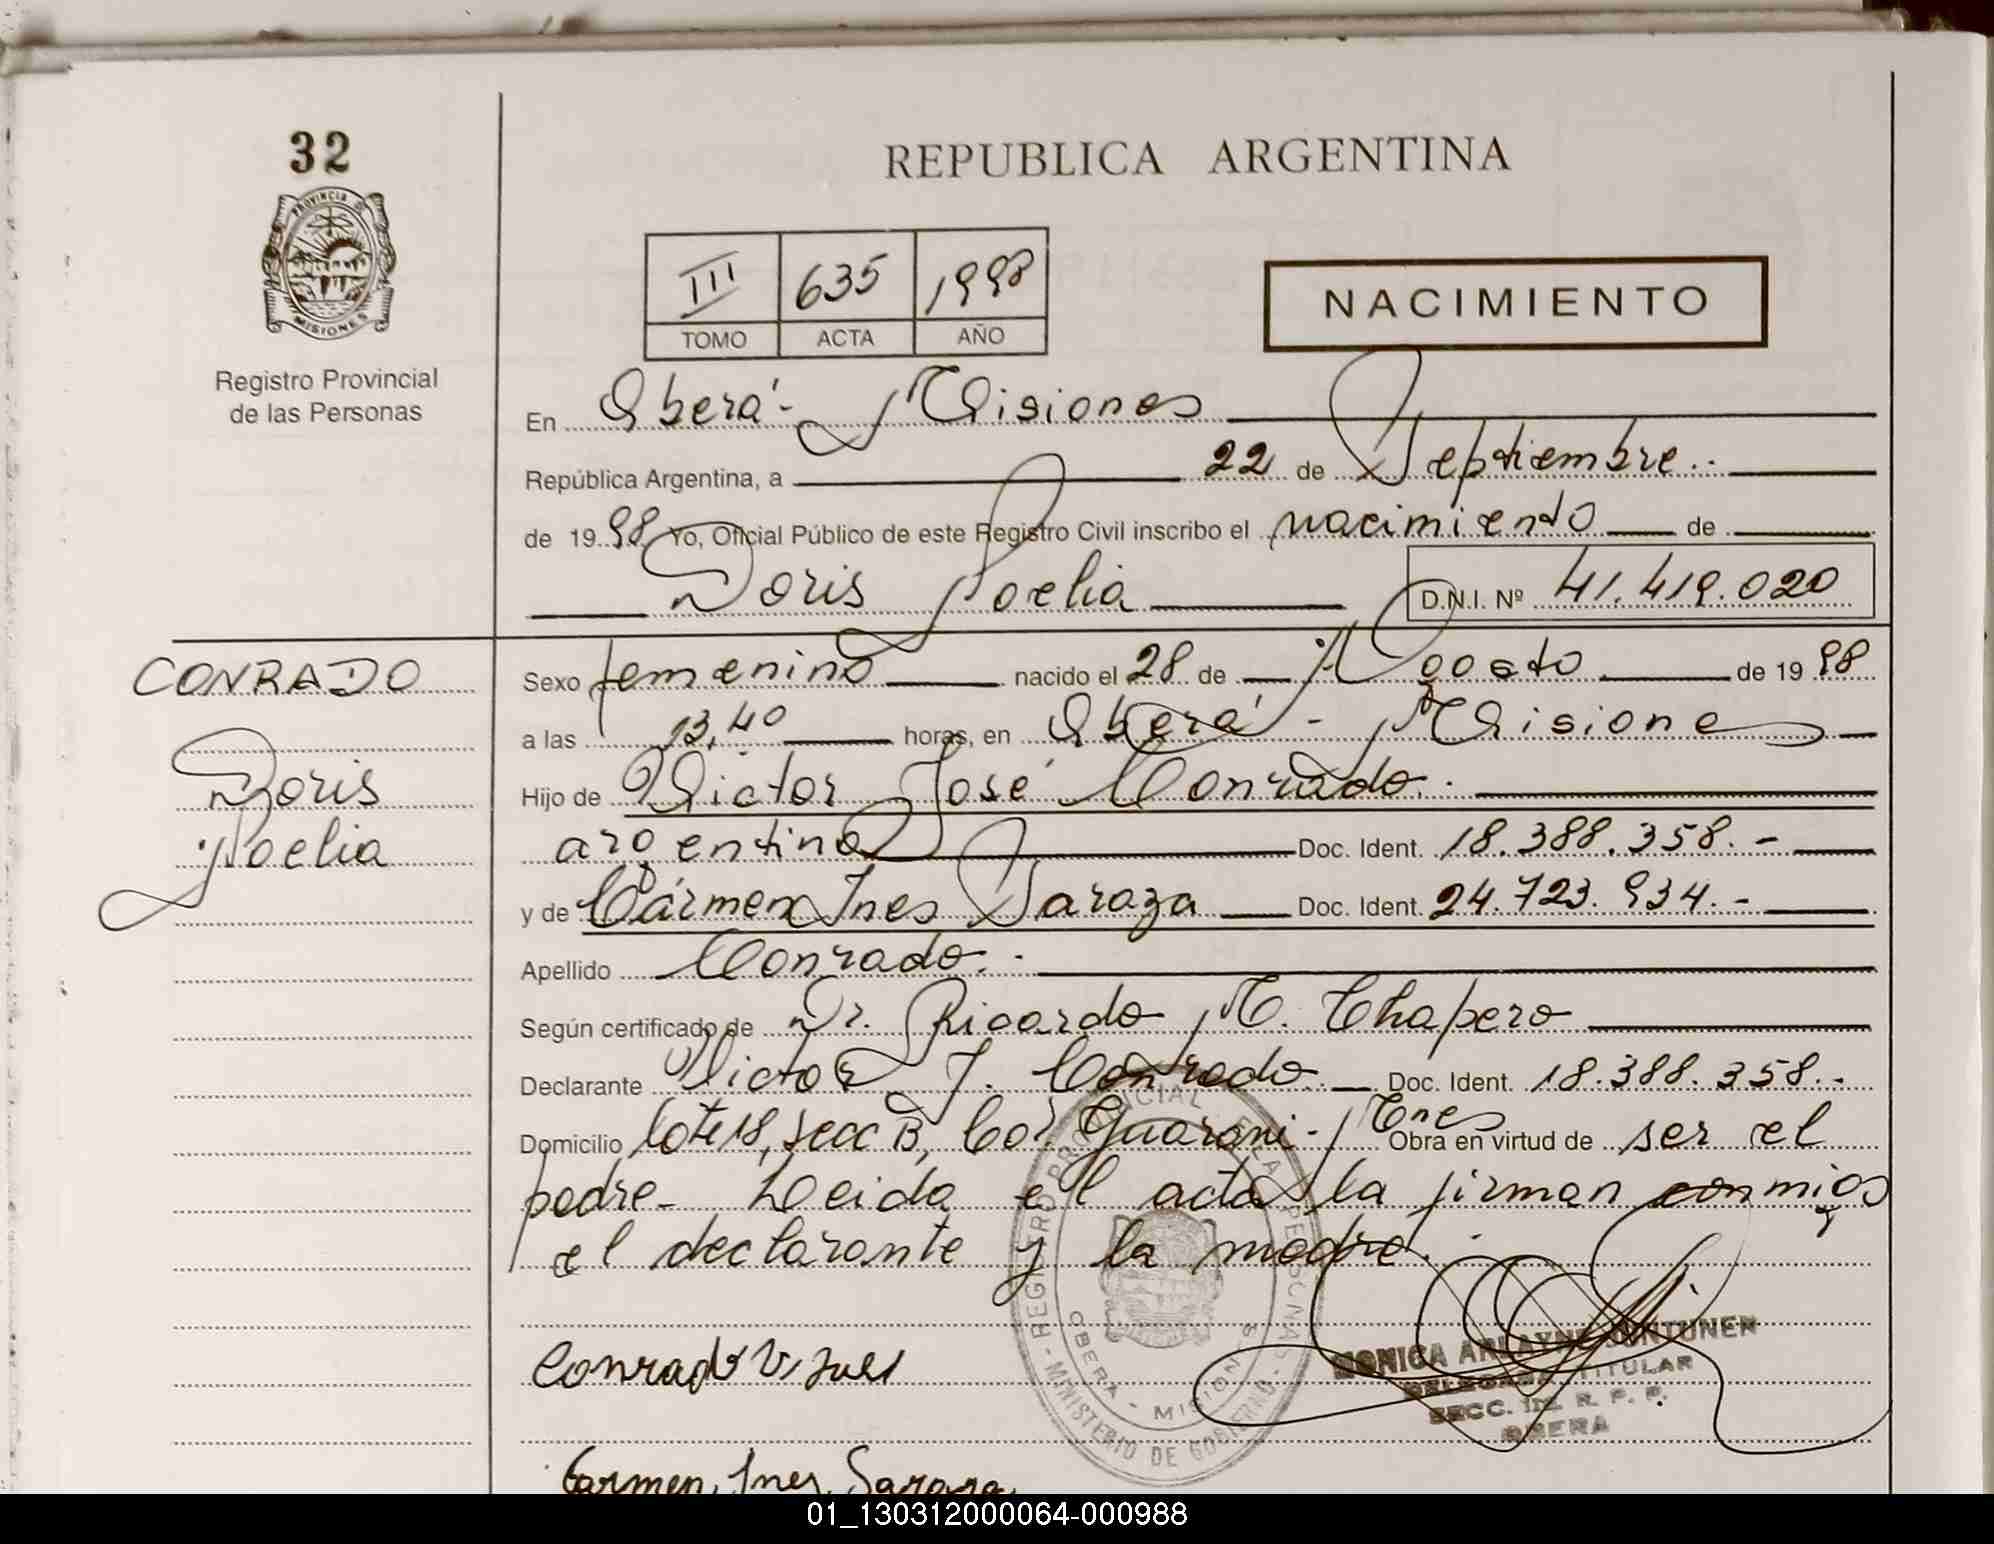 32
PROVINCIA DE
MISIONES
Registro Provincial
de las Personas
REPUBLICA ARGENTINA
III 635 1998
TOMO ACTA AÑO
NACIMIENTO
En Oberá - Misiones
República Argentina, a 22 de Septiembre.
de 1998 Yo, Oficial Público de este Registro Civil inscribo el nacimiento de
Doris Noelia D.N.I. Nº 41.419.020
CONRADO
Doris
Noelia
Sexo femenino nacido el 28 de Agosto de 1998
a las 13,40 horas, en Oberá - Misiones
Hijo de Victor José Conrado.
argentino Doc. Ident. 18.388.358.-
y de Cármen Ines Saraza Doc. Ident. 24.723.934.-
Apellido Conrado.-
Según certificado de Dr. Ricardo M. Chapero
Declarante Victor J. Conrado. Doc. Ident. 18.388.358.-
Domicilio lote 18, secc B, Col. Guarani - Mnes Obra en virtud de ser el
padre- Leida el acta la firman conmigo
el declarante y la madre.
REGISTRO PROVINCIAL DE LAS PERSONAS
OBERA - MISIONES
- MINISTERIO DE GOBIERNO -
MONICA
DELEGADA TITULAR
SECC. R. P. P.
OBERA
Conrado V. José
Carmen, Ines, Saraza
01_130312000064-000988